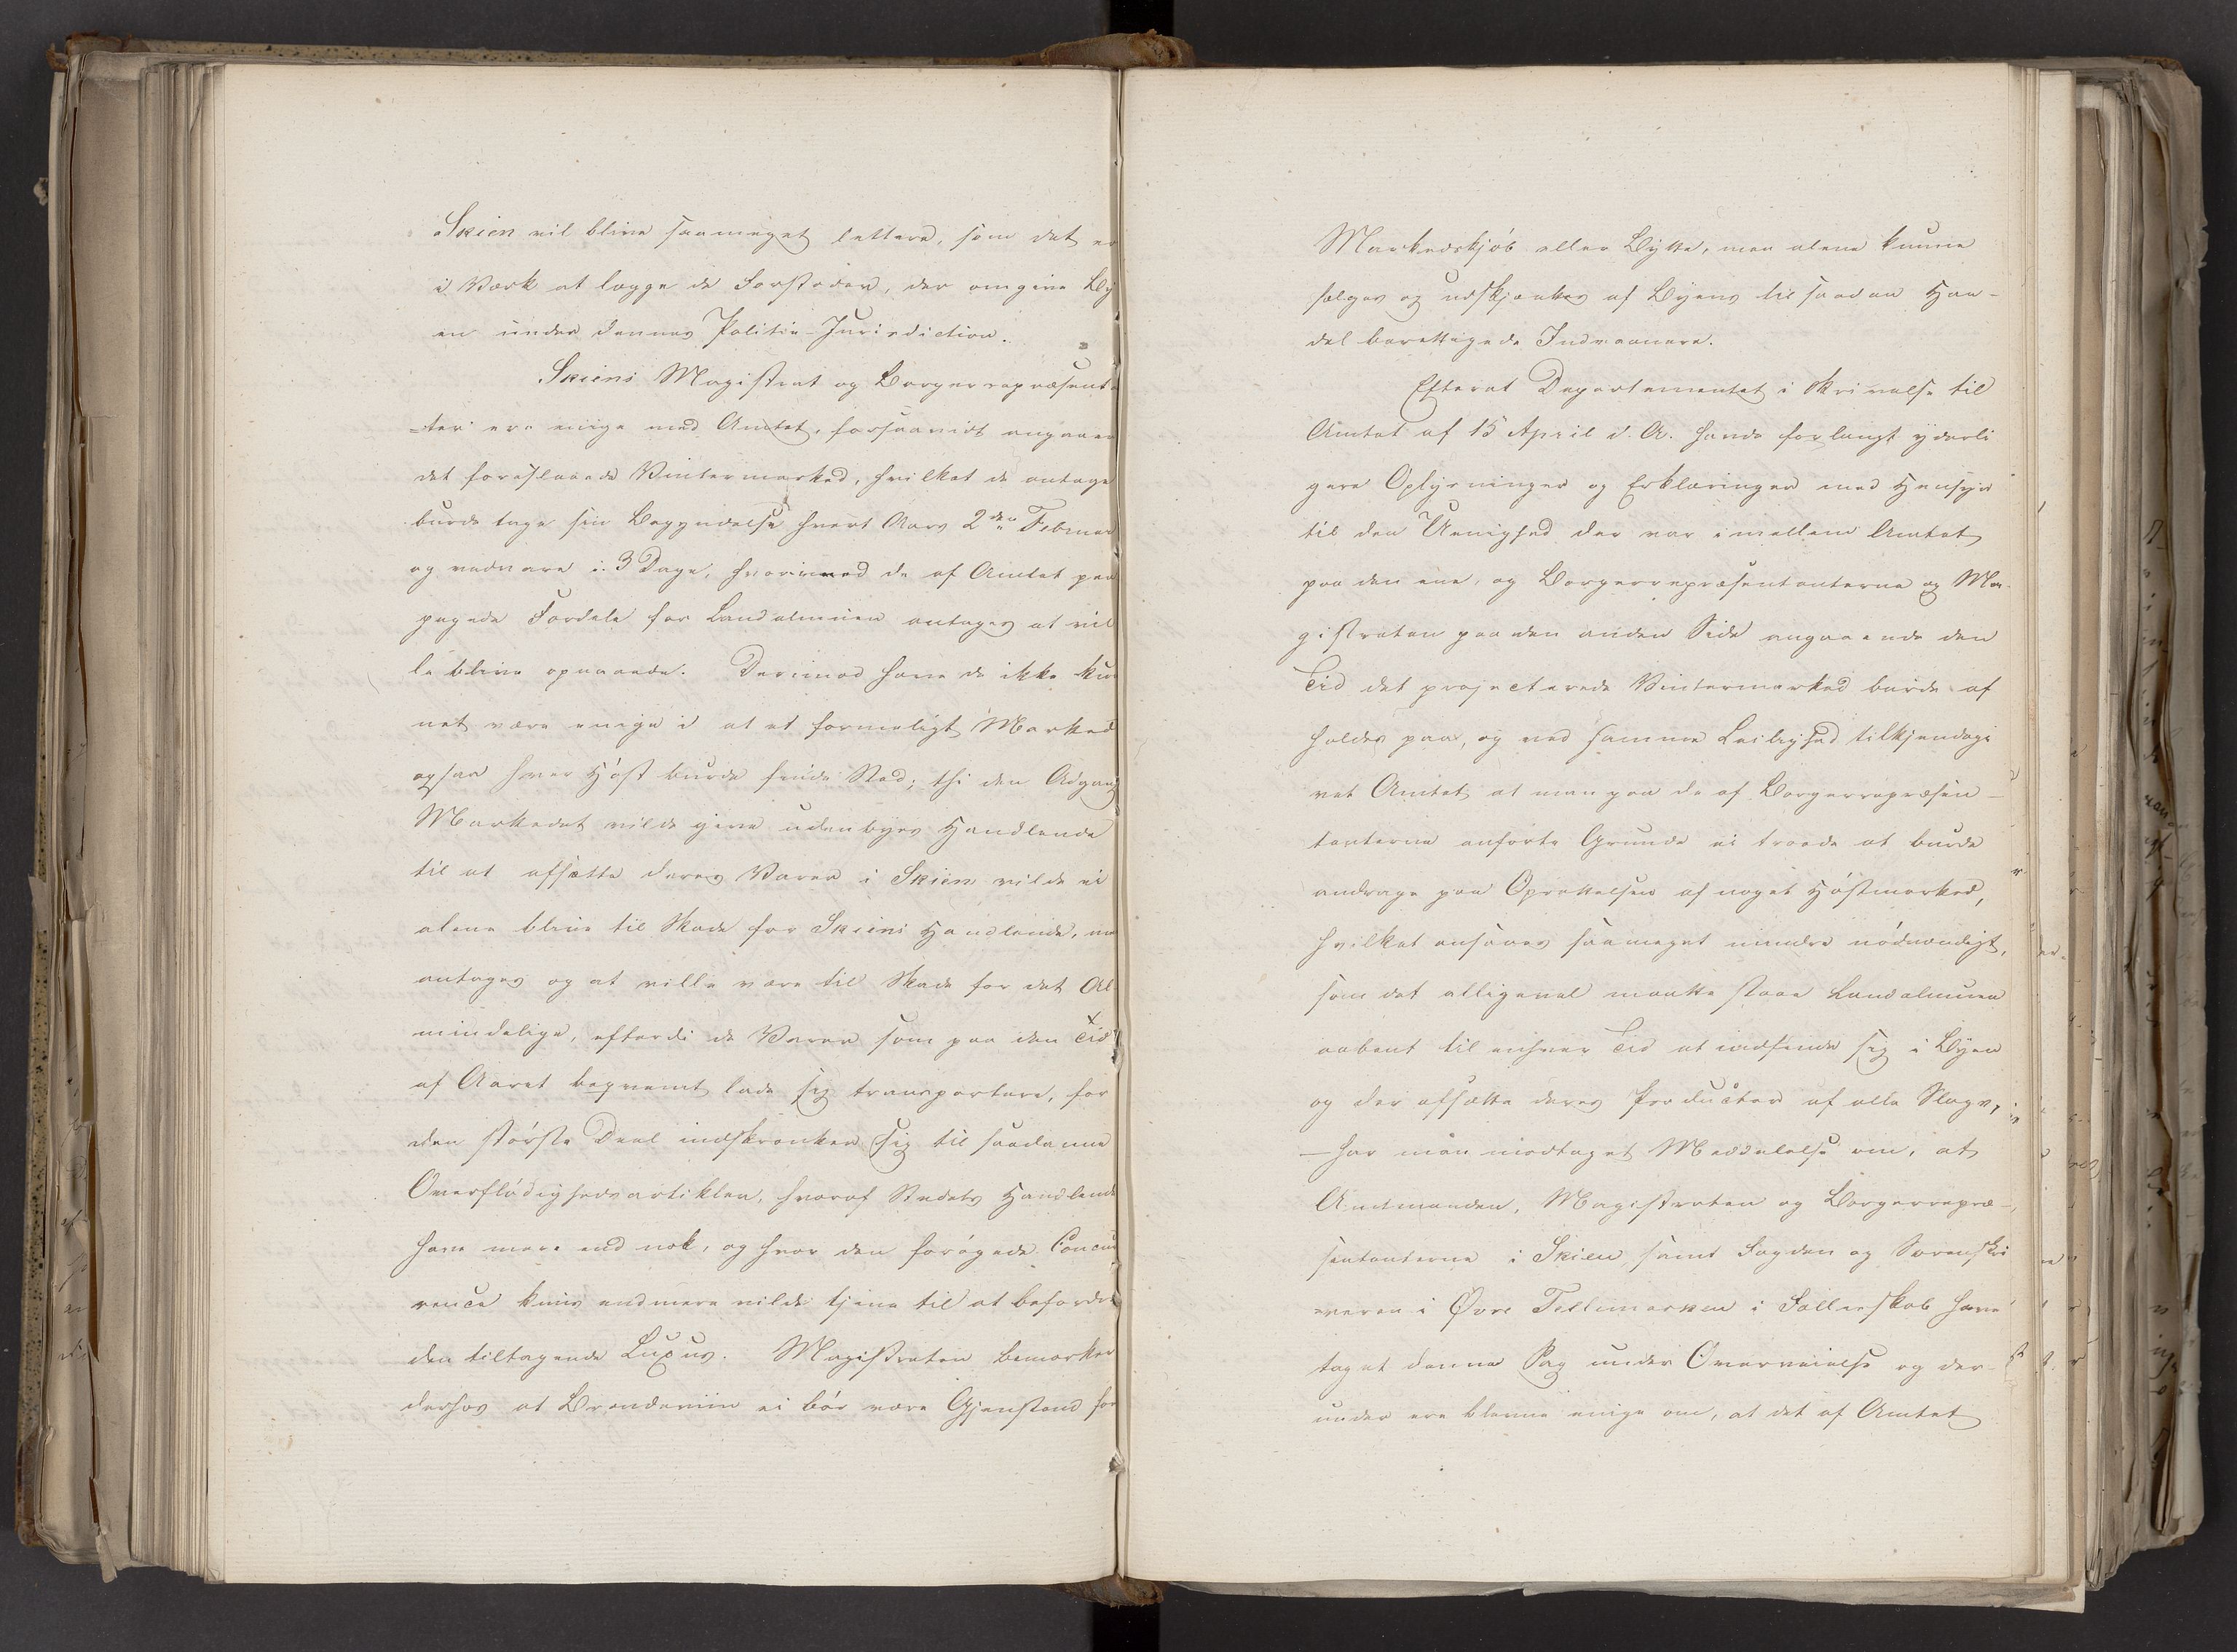 Skien vil blive saameget lettere, som det er
i Værk at lægge de Forstæder, der omgive By
en under dennes Politie-Jurisdiction.
Skiens Magistrat og Borgerrepræsent
=ter ere enige med Amtet, forsaavidt angaaer
det foreslaaede Vintermarked, hvilket de antage
burde tage sin Begyndelse hvert Aar 2den Februar
og vedvare i 3 Dage, hvorimod de af Amtet paa
pegede Fordele for Landalmuen antages at vil
le blive opnaaede. Derimod have de ikke kun
net være enige i at et formeligt Marked
ogsaa hver Høst burde finde Sted; thi den Adgang
Markedet vilde give udenbyes Handlende
til at afsætte deres Varer i Skien vilde ei
alene blive til Skade for Skiens Handlende, me
antages og at ville være til Skade for det Al
mindelige, efterdi de Varer som paa den Tid
af Aaret beqvemt lade sig transportere, for
den største Deel indskrænker sig til saadanne
Overflødighedsartikler, hvoraf Stedets Handlende
have mere end nok, og hvor den forøgede Concur
rence kuns endmere vilde tjene til at befordre
den tiltagende Luxus. Magistraten bemærker
derhos at Brændeviin ei bør være Gjenstand for
Markedskjøb eller Bytte, men alene kunne
sælges og udskjænkes af Byens til saadan Han-
del berettigede Indvaanere.
Efterat Departementet i Skrivelse til
Amtet af 15 April d. A. havde forlangt yderli
gere Oplysninger og Erklæringer med Hensyn
til den Uenighed der var imellem Amtet
paa den ene, og Borgerrepræsentanterne og Ma-
gistraten paa den anden Side angaaende den
Tid det projecterede Vintermarked burde af
holdes paa, og ved samme Leilighed tilkjendegi
vet Amtet, at man paa de af Borgerrepræsen-
tanterne anførte Grunde ei troede at burde
andrage paa Oprettelsen af noget Høstmarked,
hvilket ansaaes saameget mindre nødvendigt,
som det alligevel maatte staae Landalmuen
aabent til enhver Tid at indfinde sig i Byen
og der afsætte deres Producter af alle Slags,
- har man modtaget Meddelelse om, at
Amtmanden, Magistraten og Borgerrepræ-
sentanterne i Skien, samt Fogden og Sorenskri
veren i Øvre Tellemarken i Fællesskab have
taget denne Sag under Overveielse og der-
under ere blevne enige om, at det af Amtet